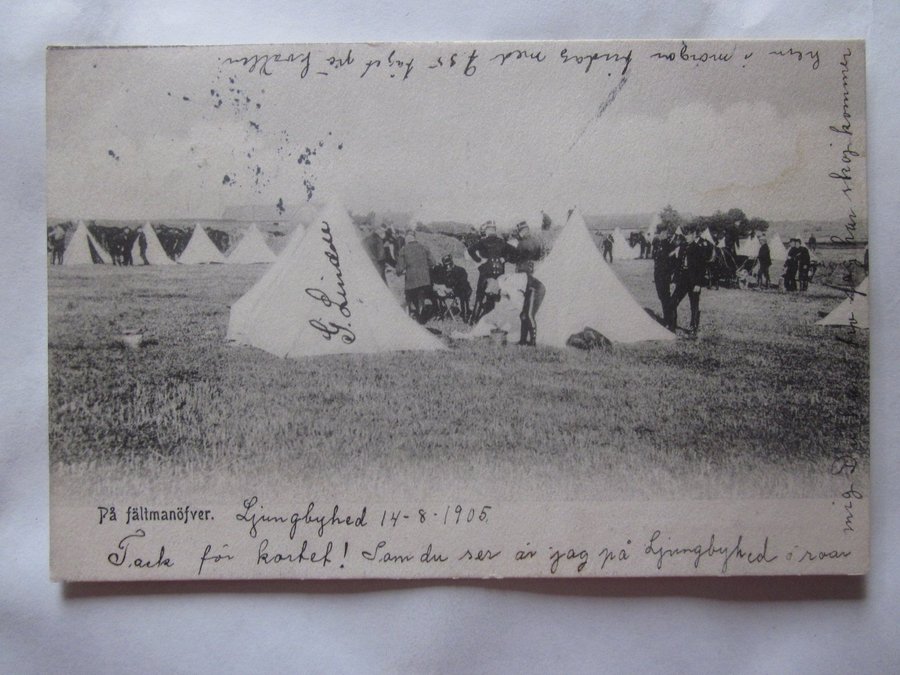 På fältmanöfver. Ljungbyhed 14-8-1905.
Tack för kortet! Som du ser är jag på Ljungbyhed o roar
mig bra. Jag han sköj kommer
hem i morgon fredag med 7 55 tåget på kvällen
G. Lindde